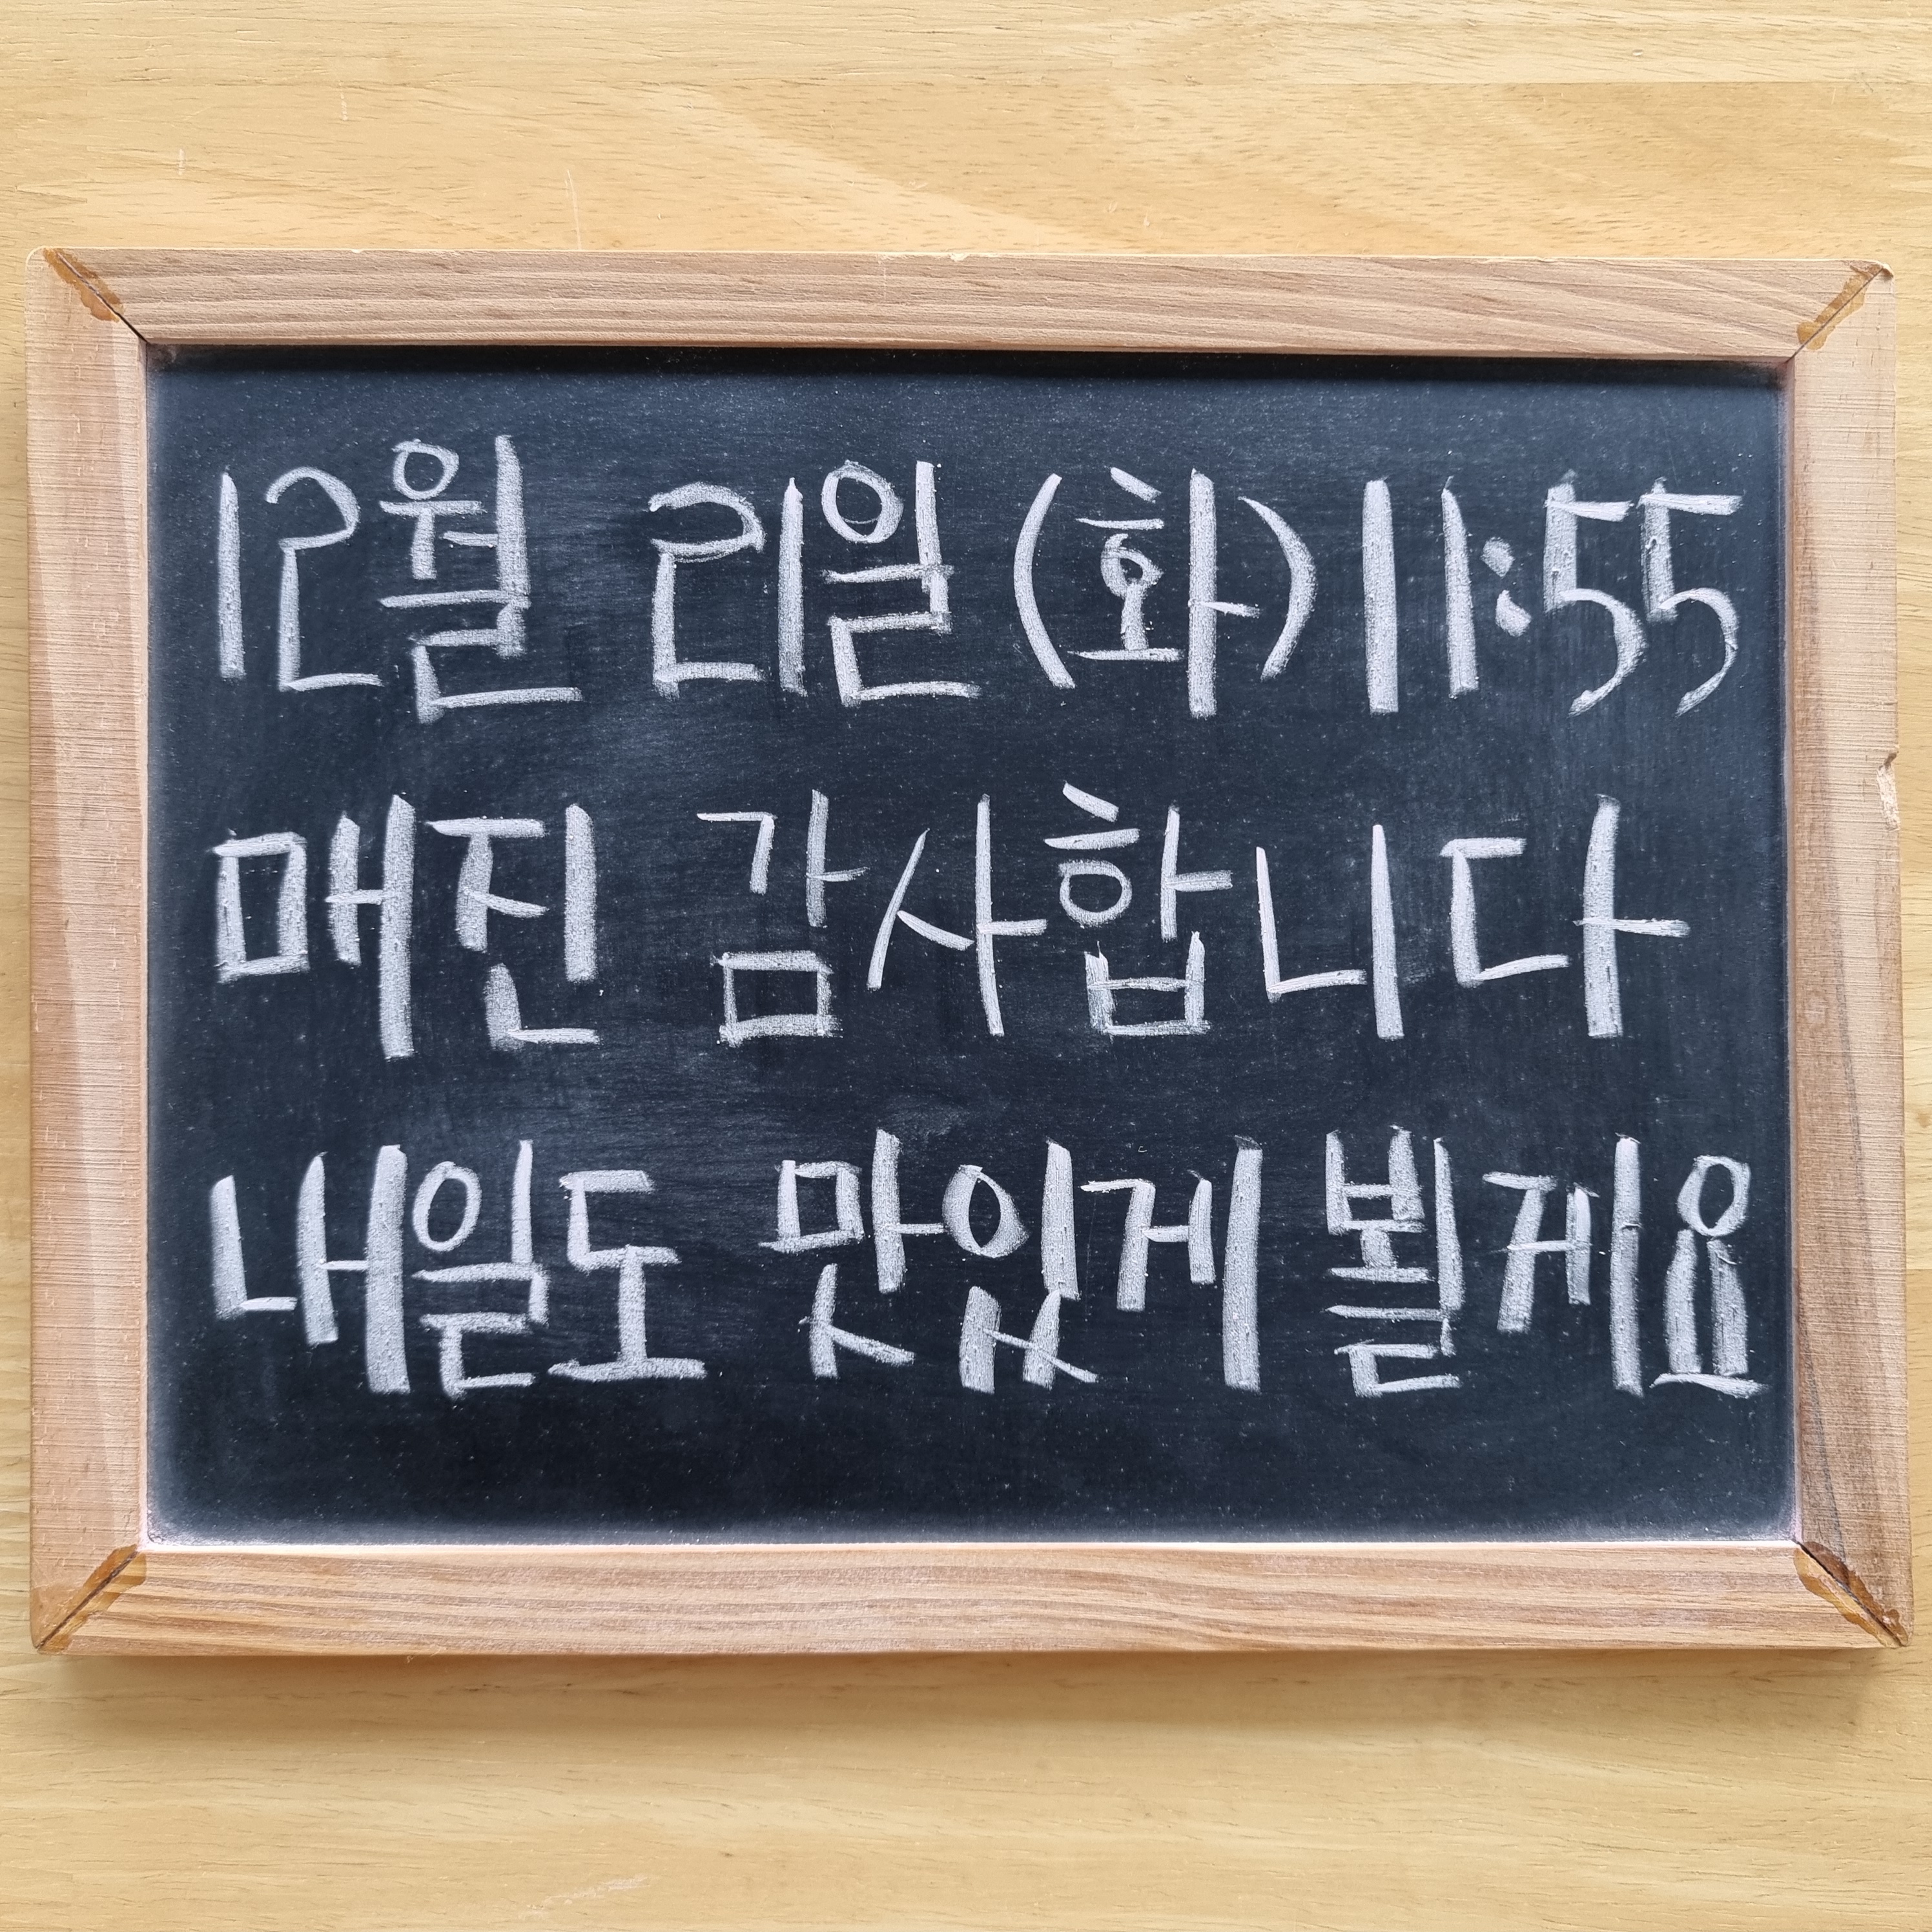 12월 21일(화)11:55
매진 감사합니다
내일도 맛있게 뵐게요